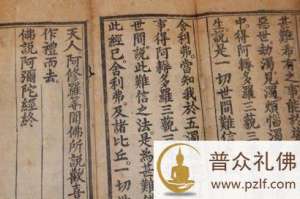 甚難希有之
惡世劫濁見濁煩惱濁
中得阿耨多羅三藐三
生說是一切世間難信
舍利弗當知我於五濁
事得阿耨多羅三藐三
世間說此難信之法是為甚難
此經已舍利弗及諸比丘一切
天人阿修羅等聞佛所說歡喜
作禮而去
佛說阿彌陀經終
普众礼佛
www.pzlf.com